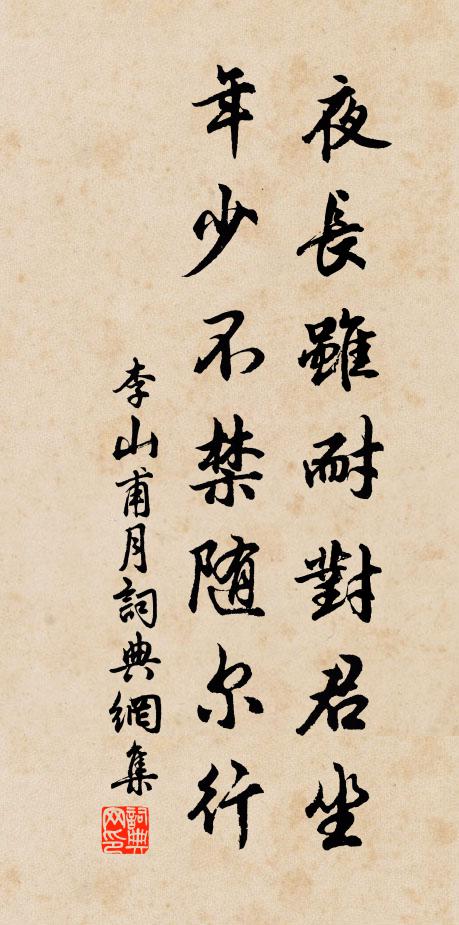 夜長雖耐對君坐
年少不禁隨尔行
李山甫月詞典網集
詞典网印